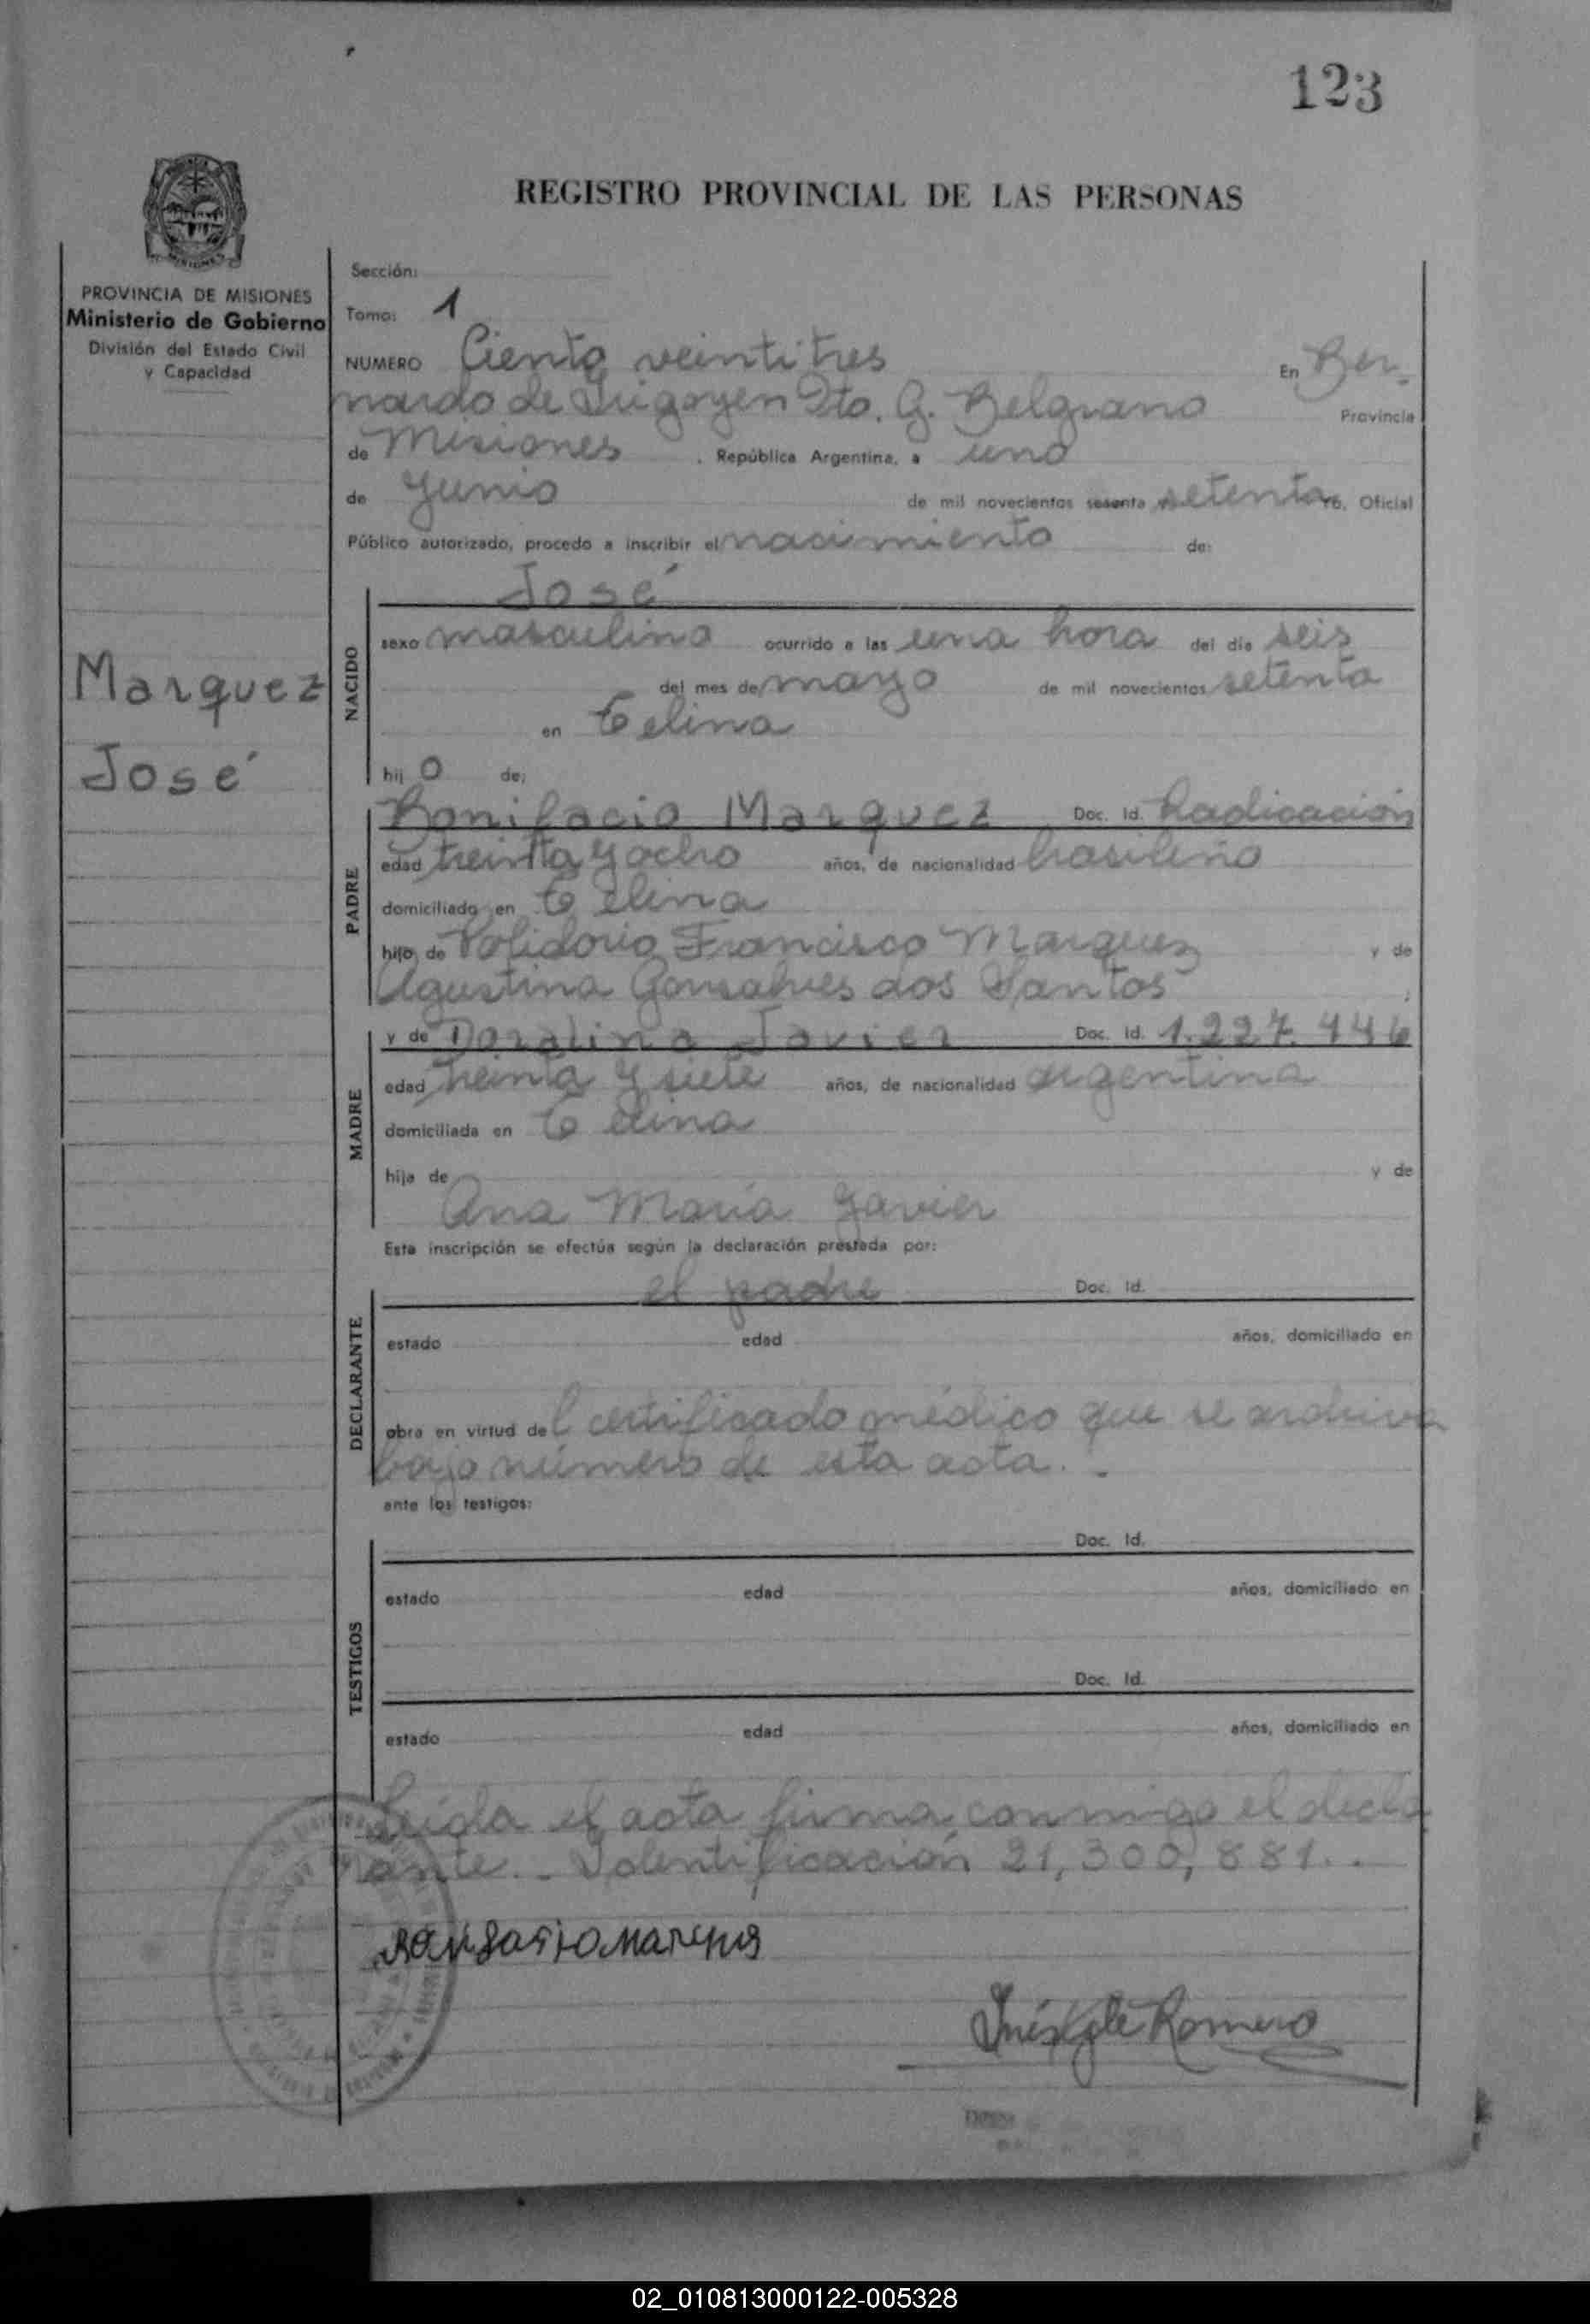 123
REGISTRO PROVINCIAL DE LAS PERSONAS
MISIONES
PROVINCIA DE MISIONES
Ministerio de Gobierno
División del Estado Civil
y Capacidad
Marquez
José
Sección:
Tomo: 1
NUMERO Ciento veintitres En Ber-
nardo de Irigoyen Dto. G. Belgrano Provincia
de Misiones, República Argentina, a uno
de Junio de mil novecientos sesenta setenta Yo, Oficial
Público autorizado, procedo a inscribir el nacimiento de:
NACIDO
José
sexo masculino ocurrido a las una hora del día seis
del mes de mayo de mil novecientos setenta
en Celina
hij o de:
PADRE
Bonifacio Marquez Doc. Id. Radicación
edad treinta y ocho años, de nacionalidad brasileño
domiciliado en Celina
hijo de Polidorio Francisco Marquez y de
Agustina Gonsalves dos Santos ;
MADRE
y de Doralina Javier Doc. Id. 1.227.446
edad treinta y siete años, de nacionalidad argentina
domiciliada en Celina
hija de y de
Ana María Javier
Esta inscripción se efectúa según la declaración prestada por:
DECLARANTE
el padre Doc. Id.
estado edad años, domiciliado en
obra en virtud del certificado médico que se archiva
bajo número de esta acta. .
ante los testigos:
TESTIGOS
Doc. Id.
estado edad años, domiciliado en
Doc. Id.
estado edad años, domiciliado en
Leída el acta firma conmigo el decla
rante. - Identificación 21,300,881. .
Romero
02_010813000122-005328